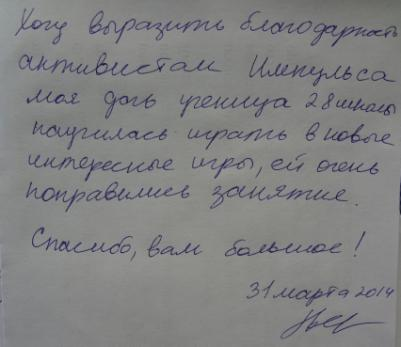 Хочу выразить благодарность
активистам Импульса
моя дочь ученица 28 школы
научилась играть в новые
интересные игры, ей очень
понравились занятие.
Спасибо, вам большое!
31 марта 2014